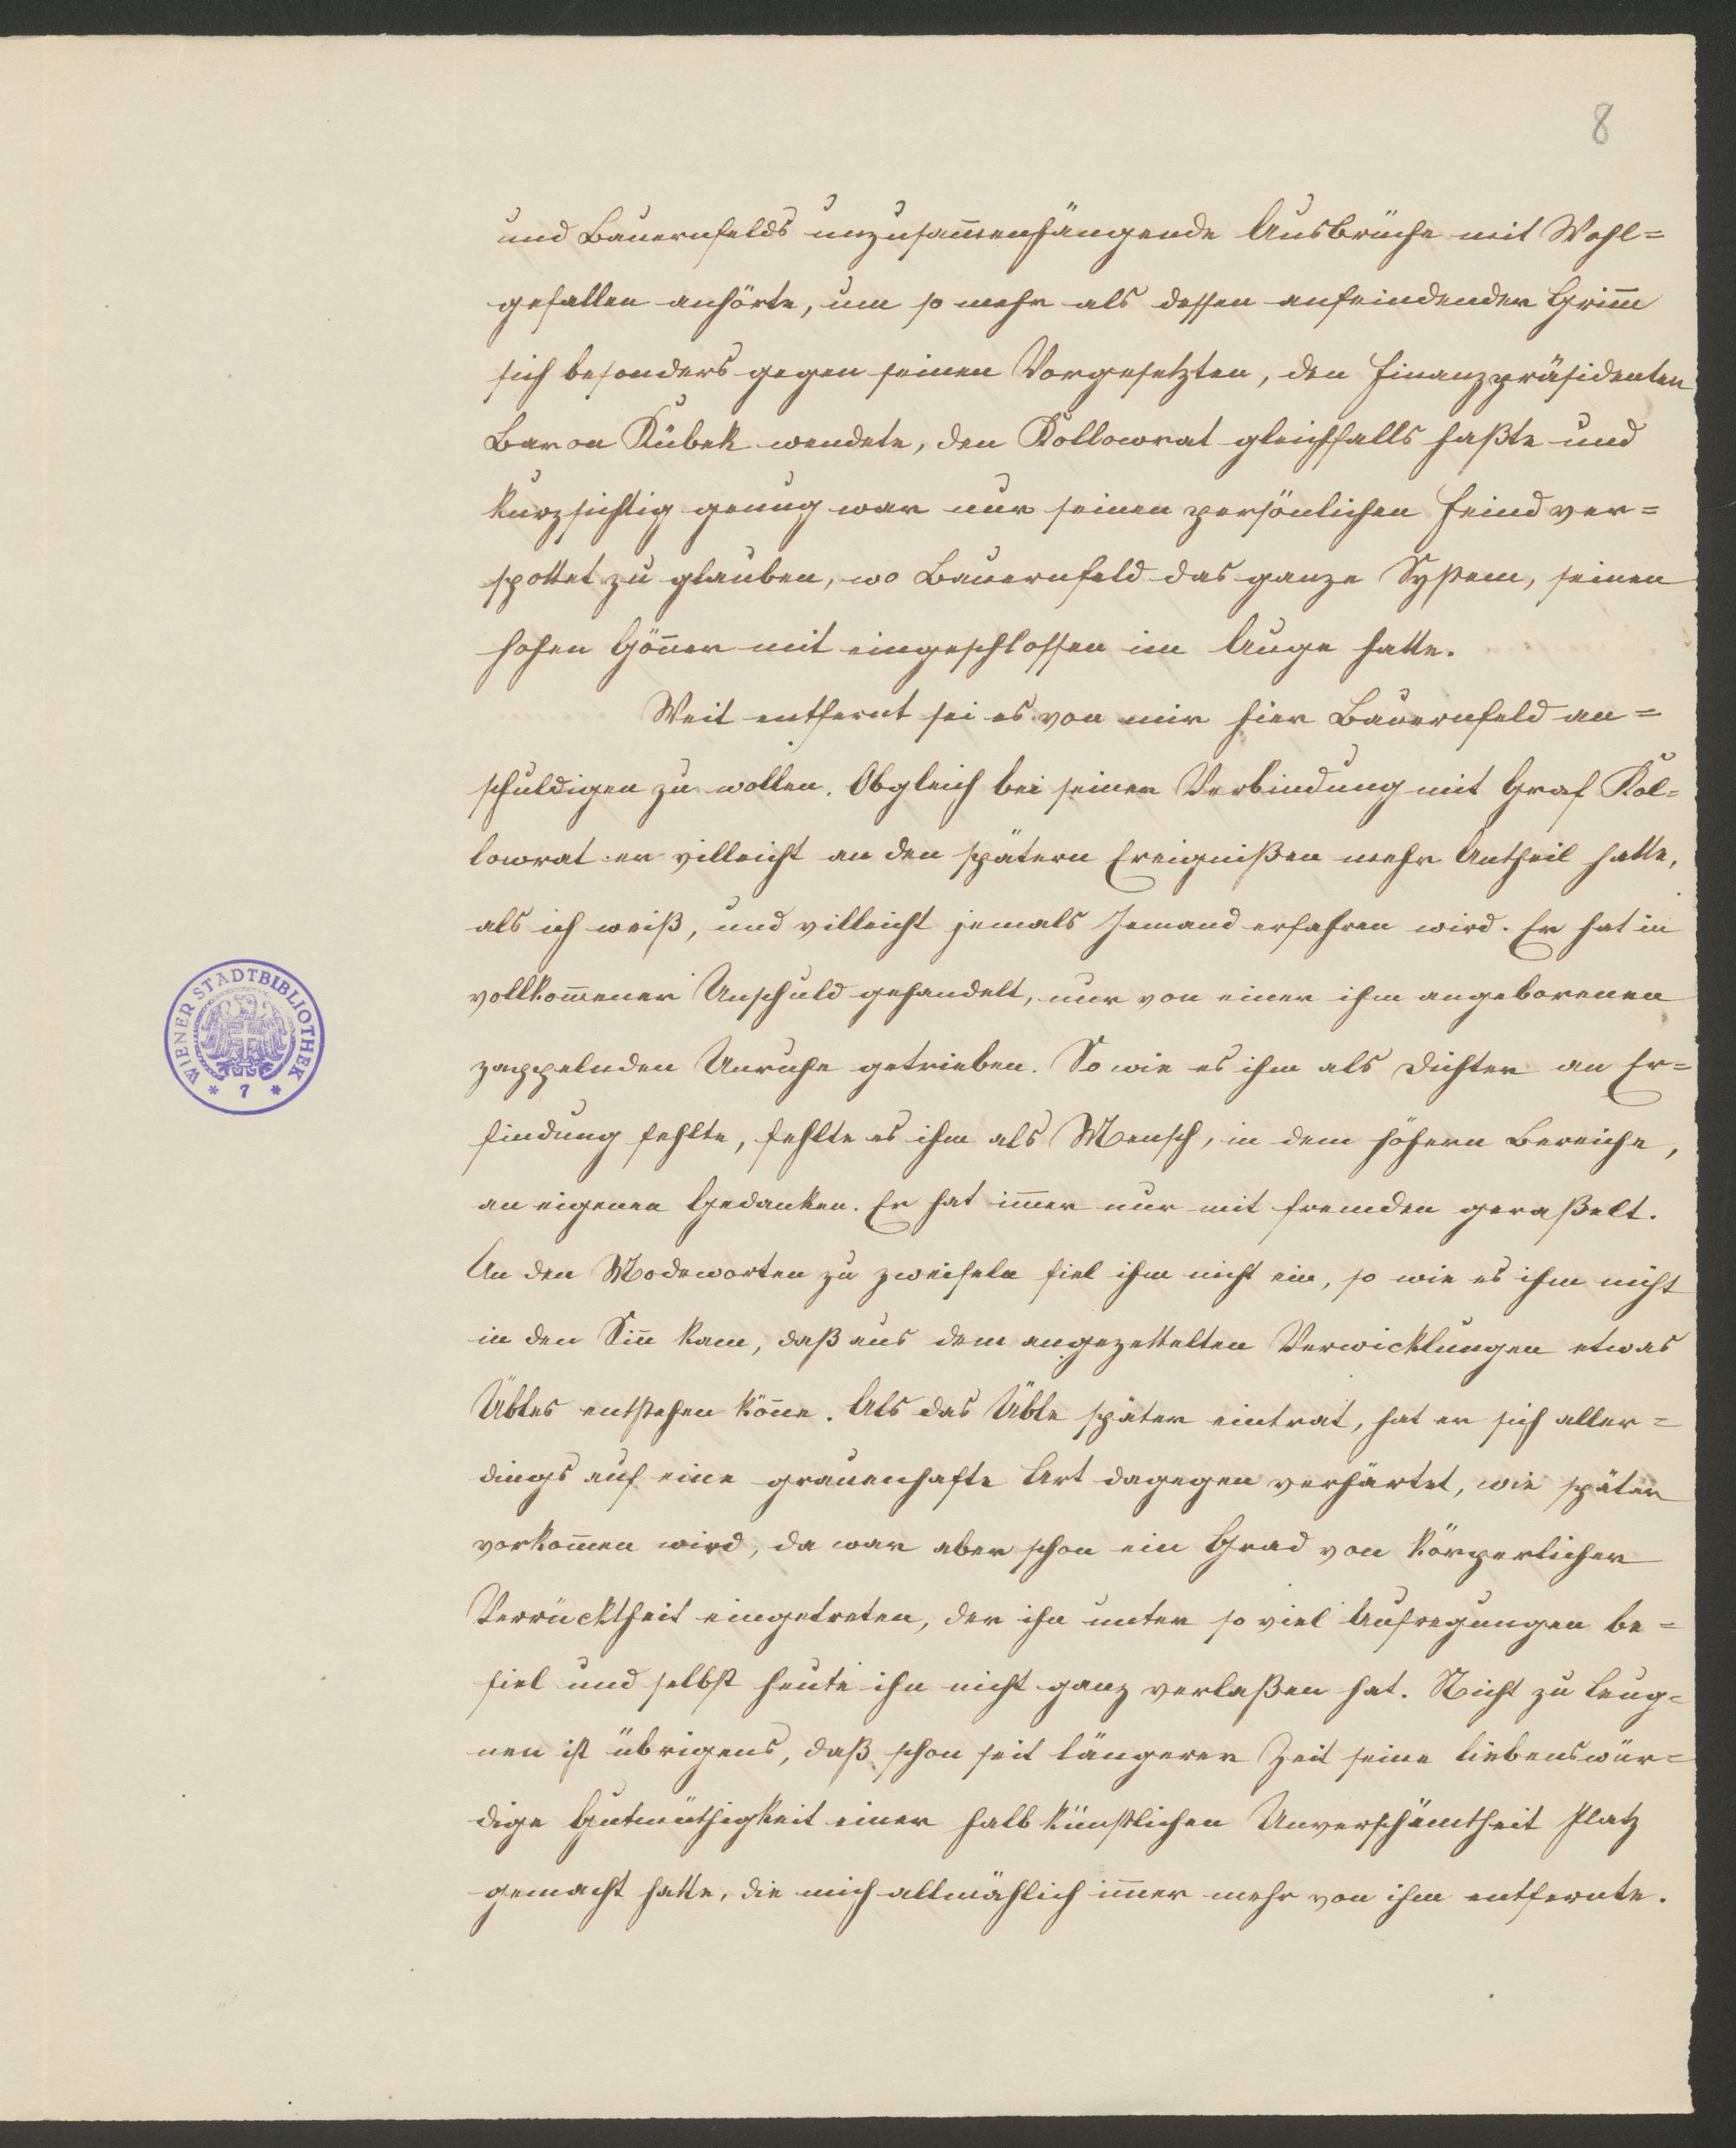 8
und Bauernfelds unzusam̅enhängende Ausbrüche mit Wohl=
gefallen anhörte, um so mehr als dessen anfeindender Grim̅
sich besonders gegen seinen Vorgesetzten, den Finanzpräsidenten
Baron Kübek wendete, den Kollowrat gleichfalls haßte und
kurzsichtig genug war nur seinen persönlichen Feind ver=
spottet zu glauben, wo Bauernfeld das ganze System, seinen
hohen Gön̅er mit eingeschlossen im Auge hatte.
Weit entfernt sei es von mir hier Bauernfeld an=
schuldigen zu wollen. Obgleich bei seiner Verbindung mit Graf Kol=
lowrat er villeicht an den spätern Ereignißen mehr Antheil hatte,
als ich weiß, und villeicht jemals Jemand erfahren wird. Er hat in
vollkom̅ener Unschuld gehandelt, nur von einer ihm angeborenen
zappelnden Unruhe getrieben. So wie es ihm als Dichter an Er=
findung fehlte, fehlte es ihm als Mensch, in dem höhern Bereiche,
an eigenen Gedanken. Er hat im̅er nur mit fremden geraßelt.
An den Modeworten zu zweifeln fiel ihm nicht ein, so wie es ihm nicht
in den Sin̅ kam, daß aus dem angezettelten Verwicklungen etwas
Übles entstehen kön̅e. Als das Üble später eintrat, hat er sich aller=
dings auf eine grauenhafte Art dagegen verhärtet, wie später
vorkom̅en wird, da war aber schon ein Grad von körperlicher
Verrücktheit eingetreten, der ihn unter so viel Aufregungen be=
fiel und selbst heute ihn nicht ganz verlaßen hat. Nicht zu leug=
nen ist übrigens, daß schon seit längerer Zeit seine liebenswür=
dige Gutmüthigkeit einer halb künstlichen Unverschämtheit Platz
gemacht hatte, die mich allmählich im̅er mehr von ihm entfernte.
WIENER STADTBIBLIOTHEK
* 7 *